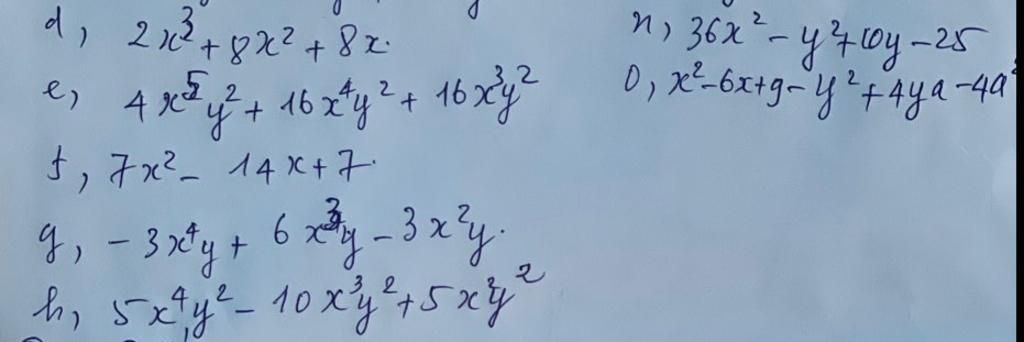 d, 2x³ + 8x² + 8x.
e, 4x⁵y² + 16x⁴y² + 16x³y²
f, 7x² - 14x + 7.
g, -3x⁴y + 6x³y - 3x²y.
h, 5x⁴y² - 10x³y² + 5x²y²
n, 36x² - y² + 10y - 25
o, x² - 6x + 9 - y² + 4ya - 4a²